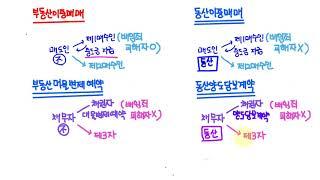 부동산이중매매
제1매수인 (배임죄
매도인 중도금 지급 피해자O)
제2매수인
동산이중매매
제1매수인 (배임죄
매도인 피해자X)
동산 제2매수인
부동산 대물변제예약
채권자 (배임죄
채무자 대물변제예약 피해자X)
제3자
동산양도담보계약
채권자 (배임죄
채무자 양도담보계약 피해자X)
동산 제3자